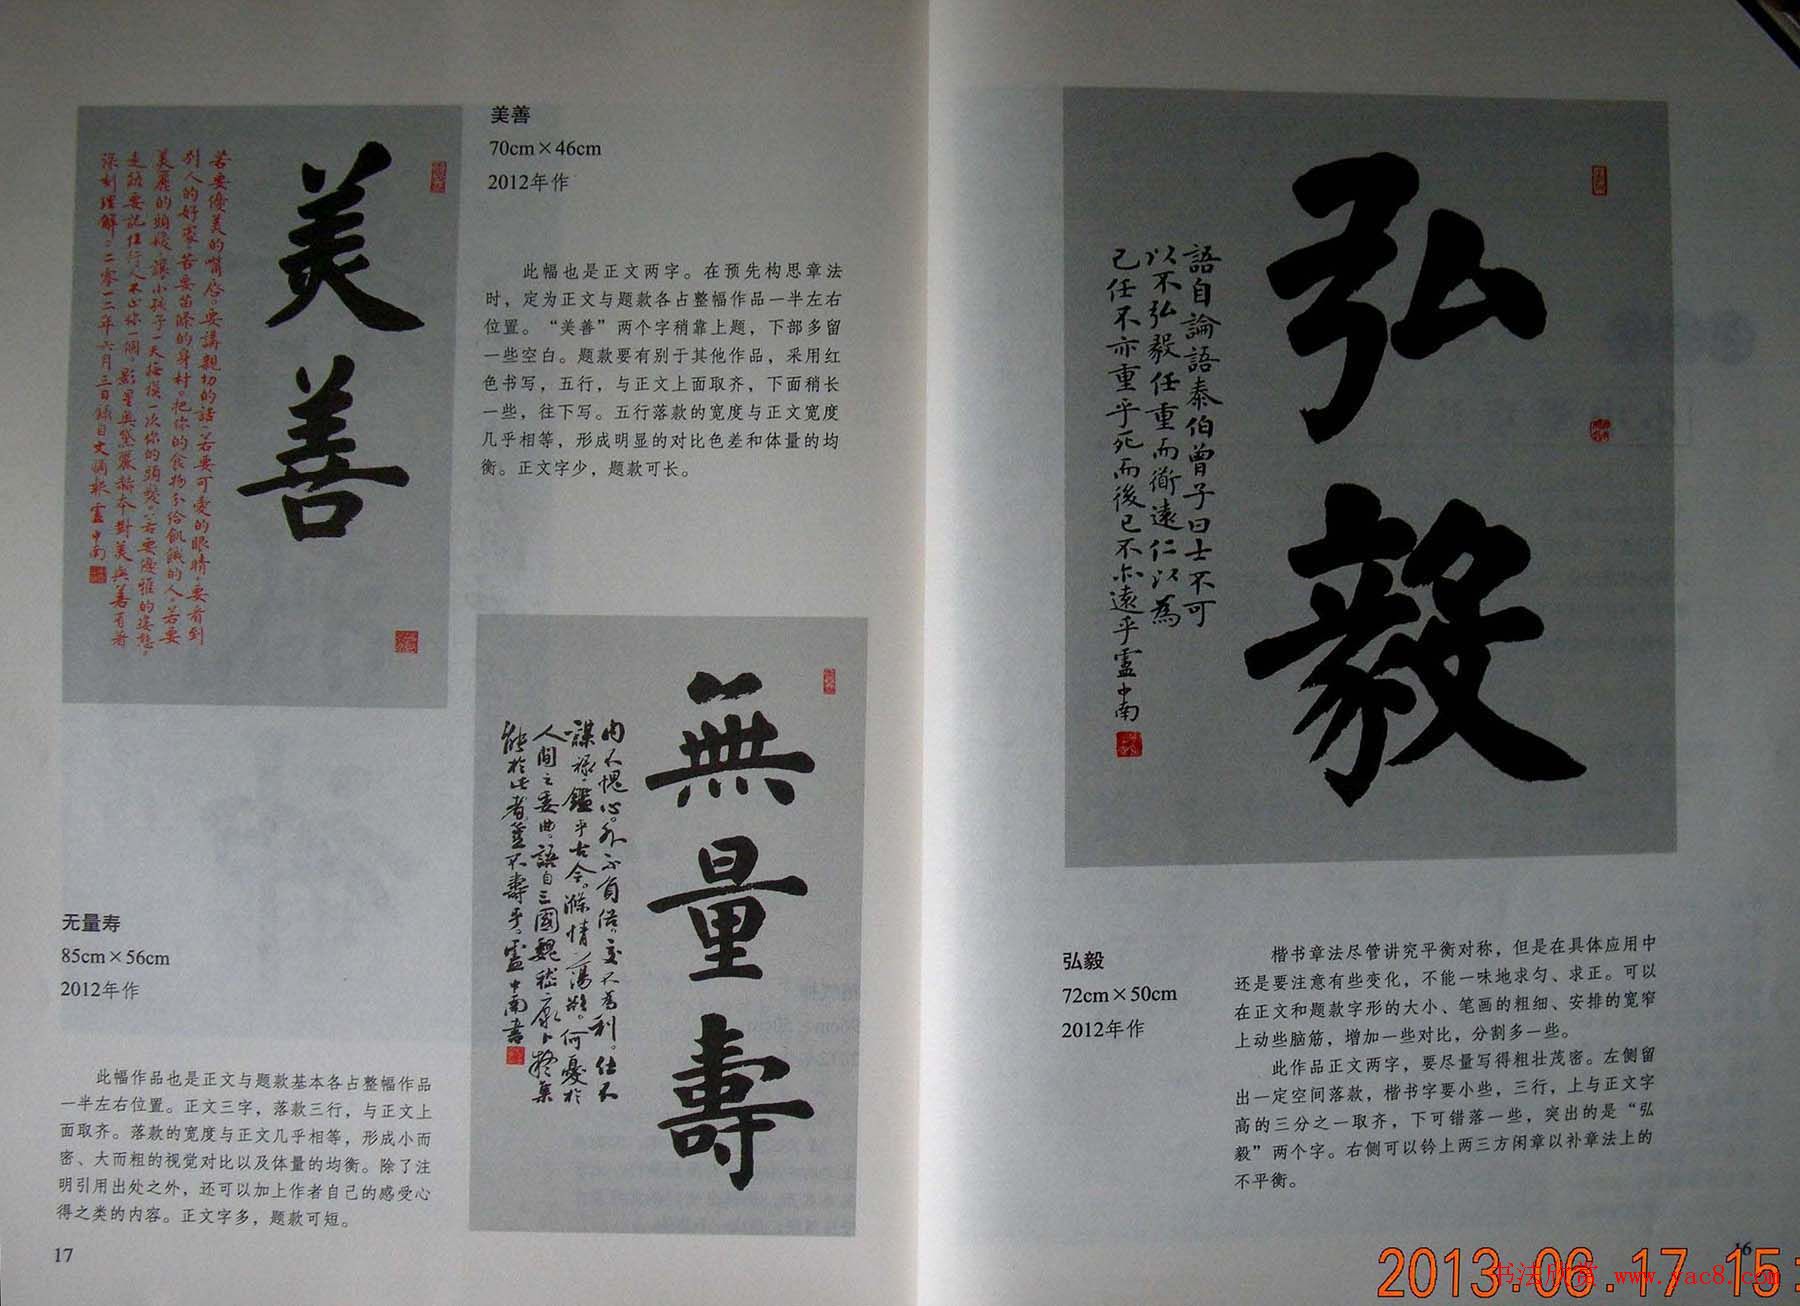 美善
70cm×46cm
2012年作
此幅也是正文两字。在预先构思章法
时，定为正文与题款各占整幅作品一半左右
位置。“美善”两个字稍靠上题，下部多留
一些空白。题款要有别于其他作品，采用红
色书写，五行，与正文上面取齐，下面稍长
一些，往下写。五行落款的宽度与正文宽度
几乎相等，形成明显的对比色差和体量的均
衡。正文字少，题款可长。
美善
若要優美的嘴唇。要講親切的話。若要可愛的眼睛。要看到
別人的好處。若要苗條的身材。把你的食物分给飢餓的人。若要
美麗的頭髮。讓小孩子一天撫摸一次你的頭髮。若要優雅的姿態。
走路要記住行人不止你一個。影星奥黛麗赫本對美與善有着
深刻理解。二零一二年六月三日錄自文摘報盧中南
无量寿
85cm×56cm
2012年作
此幅作品也是正文与题款基本各占整幅作品
一半左右位置。正文三字，落款三行，与正文上
面取齐。落款的宽度与正文几乎相等，形成小而
密、大而粗的视觉对比以及体量的均衡。除了注
明引用出处之外，还可以加上作者自己的感受心
得之类的内容。正文字多，题款可短。
無量壽
内不愧心。外不負俗。交不為利。仕不
謀禄。鑑乎古今。滌情蕩欲。何憂於
人間之委曲。語自三國魏嵇康卜疑集
能於此者豈不壽乎。盧中南書
17
弘毅
語自論語泰伯曾子曰士不可
以不弘毅任重而衟遠仁以為
己任不亦重乎死而後已不亦遠乎盧中南
弘毅
72cm×50cm
2012年作
楷书章法尽管讲究平衡对称，但是在具体应用中
还是要注意有些变化，不能一味地求匀、求正。可以
在正文和题款字形的大小、笔画的粗细、安排的宽窄
上动些脑筋，增加一些对比，分割多一些。
此作品正文两字，要尽量写得粗壮茂密。左侧留
出一定空间落款，楷书字要小些，三行，上与正文字
高的三分之一取齐，下可错落一些，突出的是“弘
毅”两个字。右侧可以钤上两三方闲章以补章法上的
不平衡。
16
2013.06.17 15:
书法欣赏 www.yac8.com